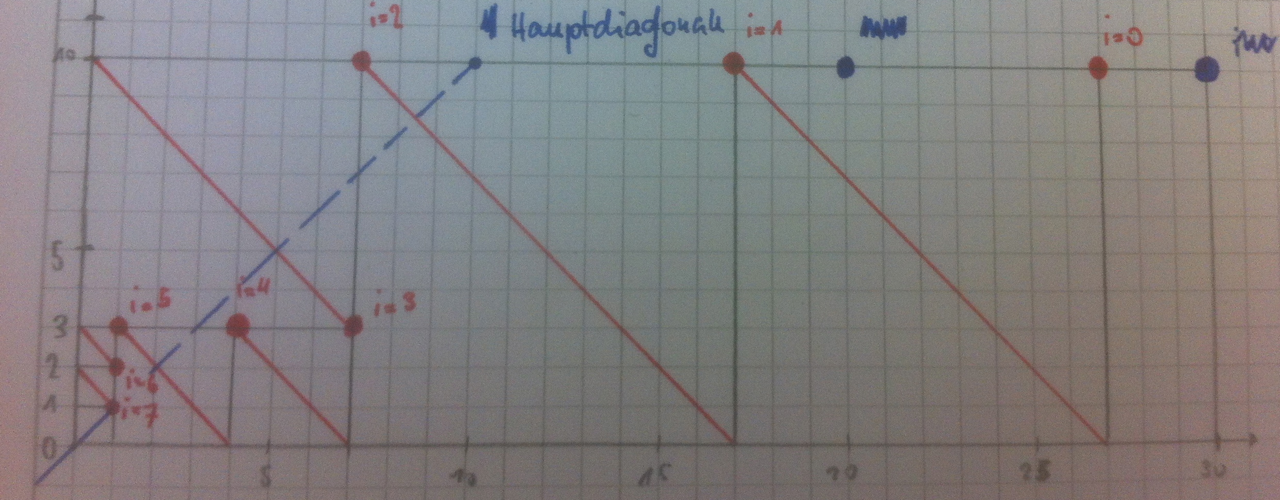 i=2
Hauptdiagonale
i=1
i=0
10
5
i=5
i=4
i=3
3
2
i=6
1
i=7
0
5
10
15
20
25
30